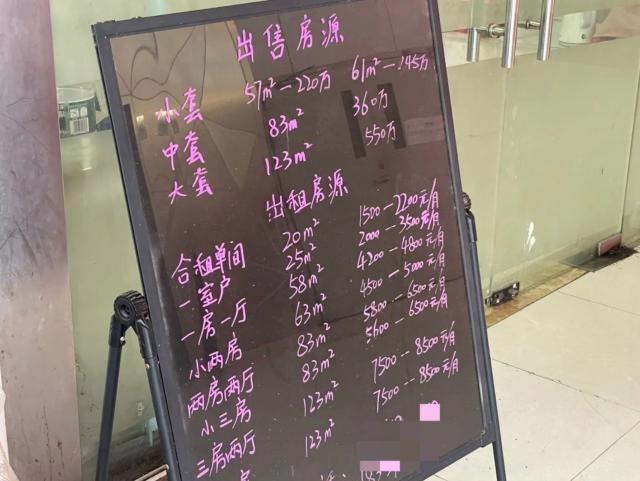 出售房源
小套 57m²—220万 61m²—245万
中套 83m² 360万
大套 123m² 550万
出租房源
合租单间 20m² 1500—2200元/月
一室户 25m² 2000—3500元/月
一房一厅 58m² 4200—4800元/月
小两房 63m² 4500—5000元/月
两房两厅 83m² 5800—6500元/月
小三房 83m² 5600—6500元/月
三房两厅 123m² 7500—8500元/月
房 123m² 7500—8500元/月